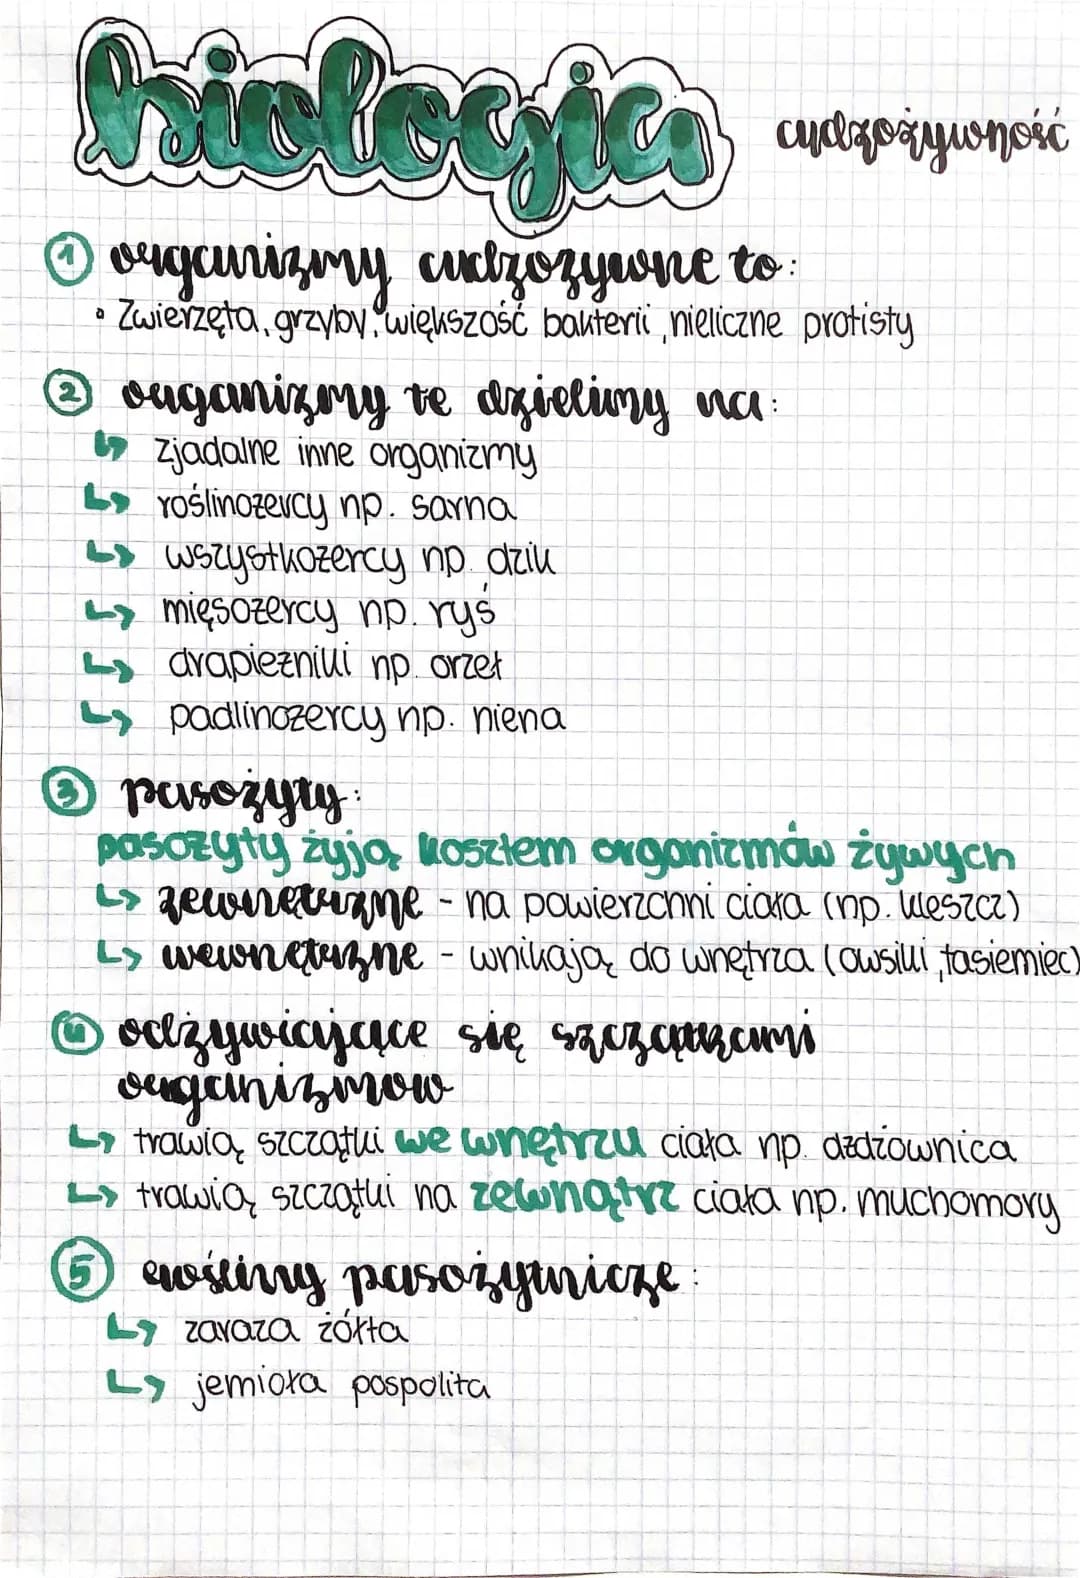 biologia cudzożywność
1 organizmy cudzożywne to:
• Zwierzęta, grzyby, większość bakterii, nieliczne protisty
2 organizmy te dzielimy na:
↳ zjadalne inne organizmy
↳ roślinożercy np. sarna
↳ wszystkożercy np. dzik
↳ mięsożercy np. ryś
↳ drapieżniki np. orzeł
↳ padlinożercy np. hiena
3 pasożyty:
pasożyty żyją kosztem organizmów żywych
↳ zewnętrzne - na powierzchni ciała (np. kleszcz)
↳ wewnętrzne - wnikają do wnętrza (owsiki, tasiemiec)
4 odżywiające się szczątkami
organizmów
↳ trawią szczątki we wnętrzu ciała np. dżdżownica
↳ trawią szczątki na zewnątrz ciała np. muchomory
5 rośliny pasożytnicze:
↳ zaraza żółta
↳ jemioła pospolita